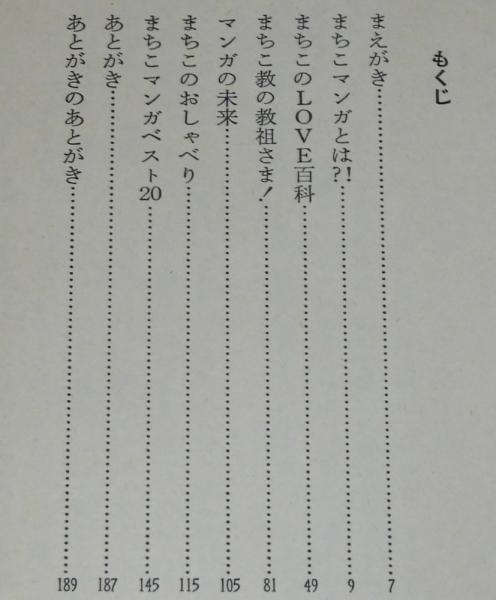 もくじ
まえがき……………………7
まちこマンガとは?!……………………9
まちこのLOVE百科……………………49
まちこ教の教祖さま!……………………81
マンガの未来……………………105
まちこのおしゃべり……………………115
まちこマンガベスト20……………………145
あとがき……………………187
あとがきのあとがき……………………189